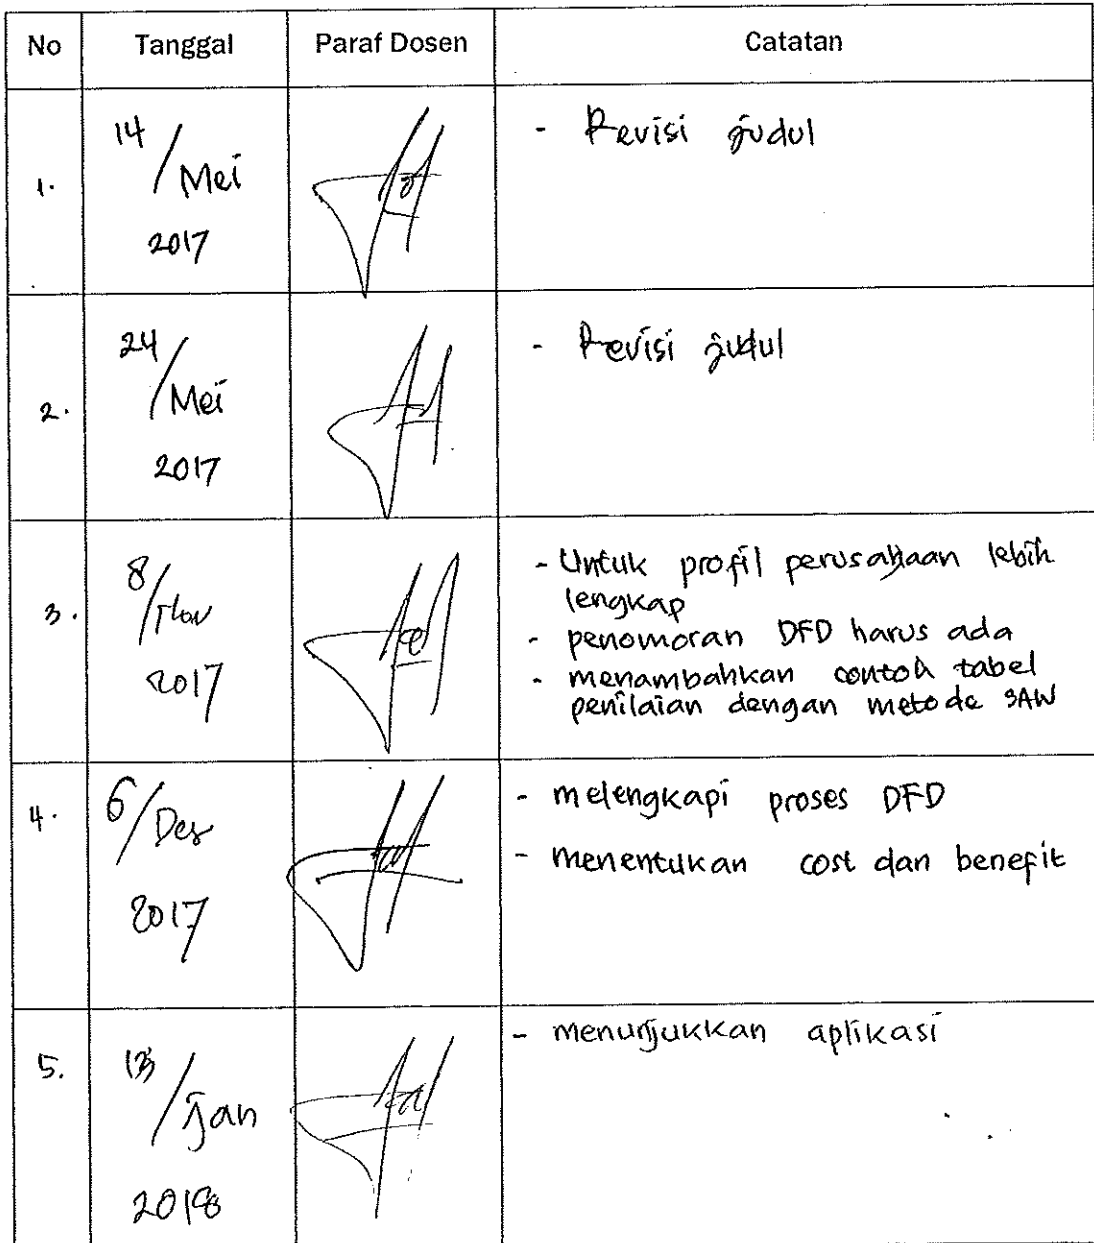 No Tanggal Paraf Dosen Catatan
1. 14/Mei 2017 - Revisi judul
2. 24/Mei 2017 - Revisi judul
3. 8/Nov 2017 - Untuk profil perusahaan lebih
lengkap
- penomoran DFD harus ada
- menambahkan contoh tabel
penilaian dengan metode SAW
4. 6/Des 2017 - melengkapi proses DFD
- menentukan cost dan benefit
5. /Jan 2018 - menunjukkan aplikasi